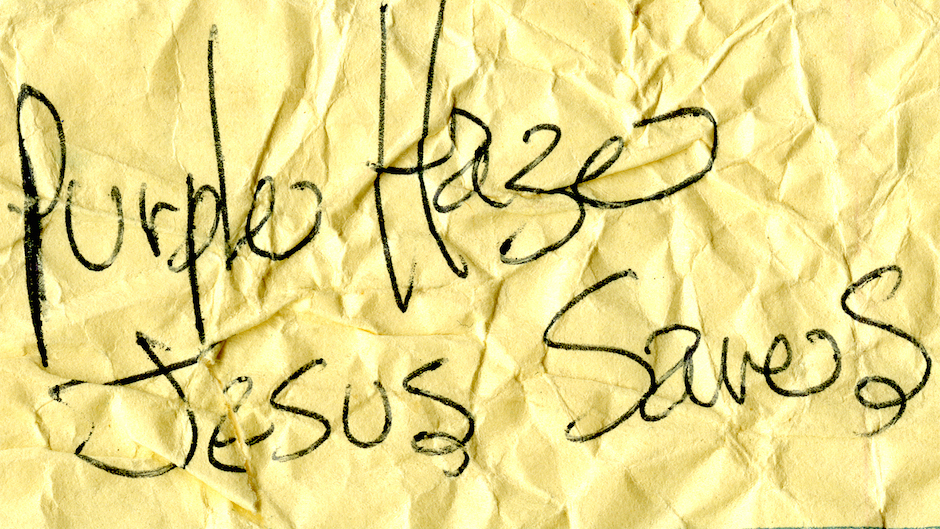 Purple Haze
Jesus Saves